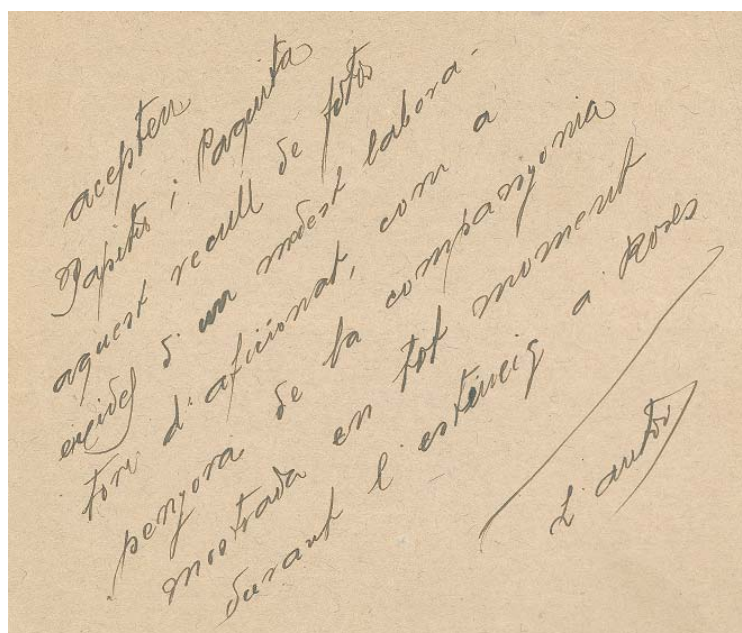 acepten
Papitu i Paquita
aquest recull de fotos
d'un modest labora-
tori d'aficionat, com a
penyora de la companyonia
mostrada en tot moment
durant l'estiueig a Roses
L'autor